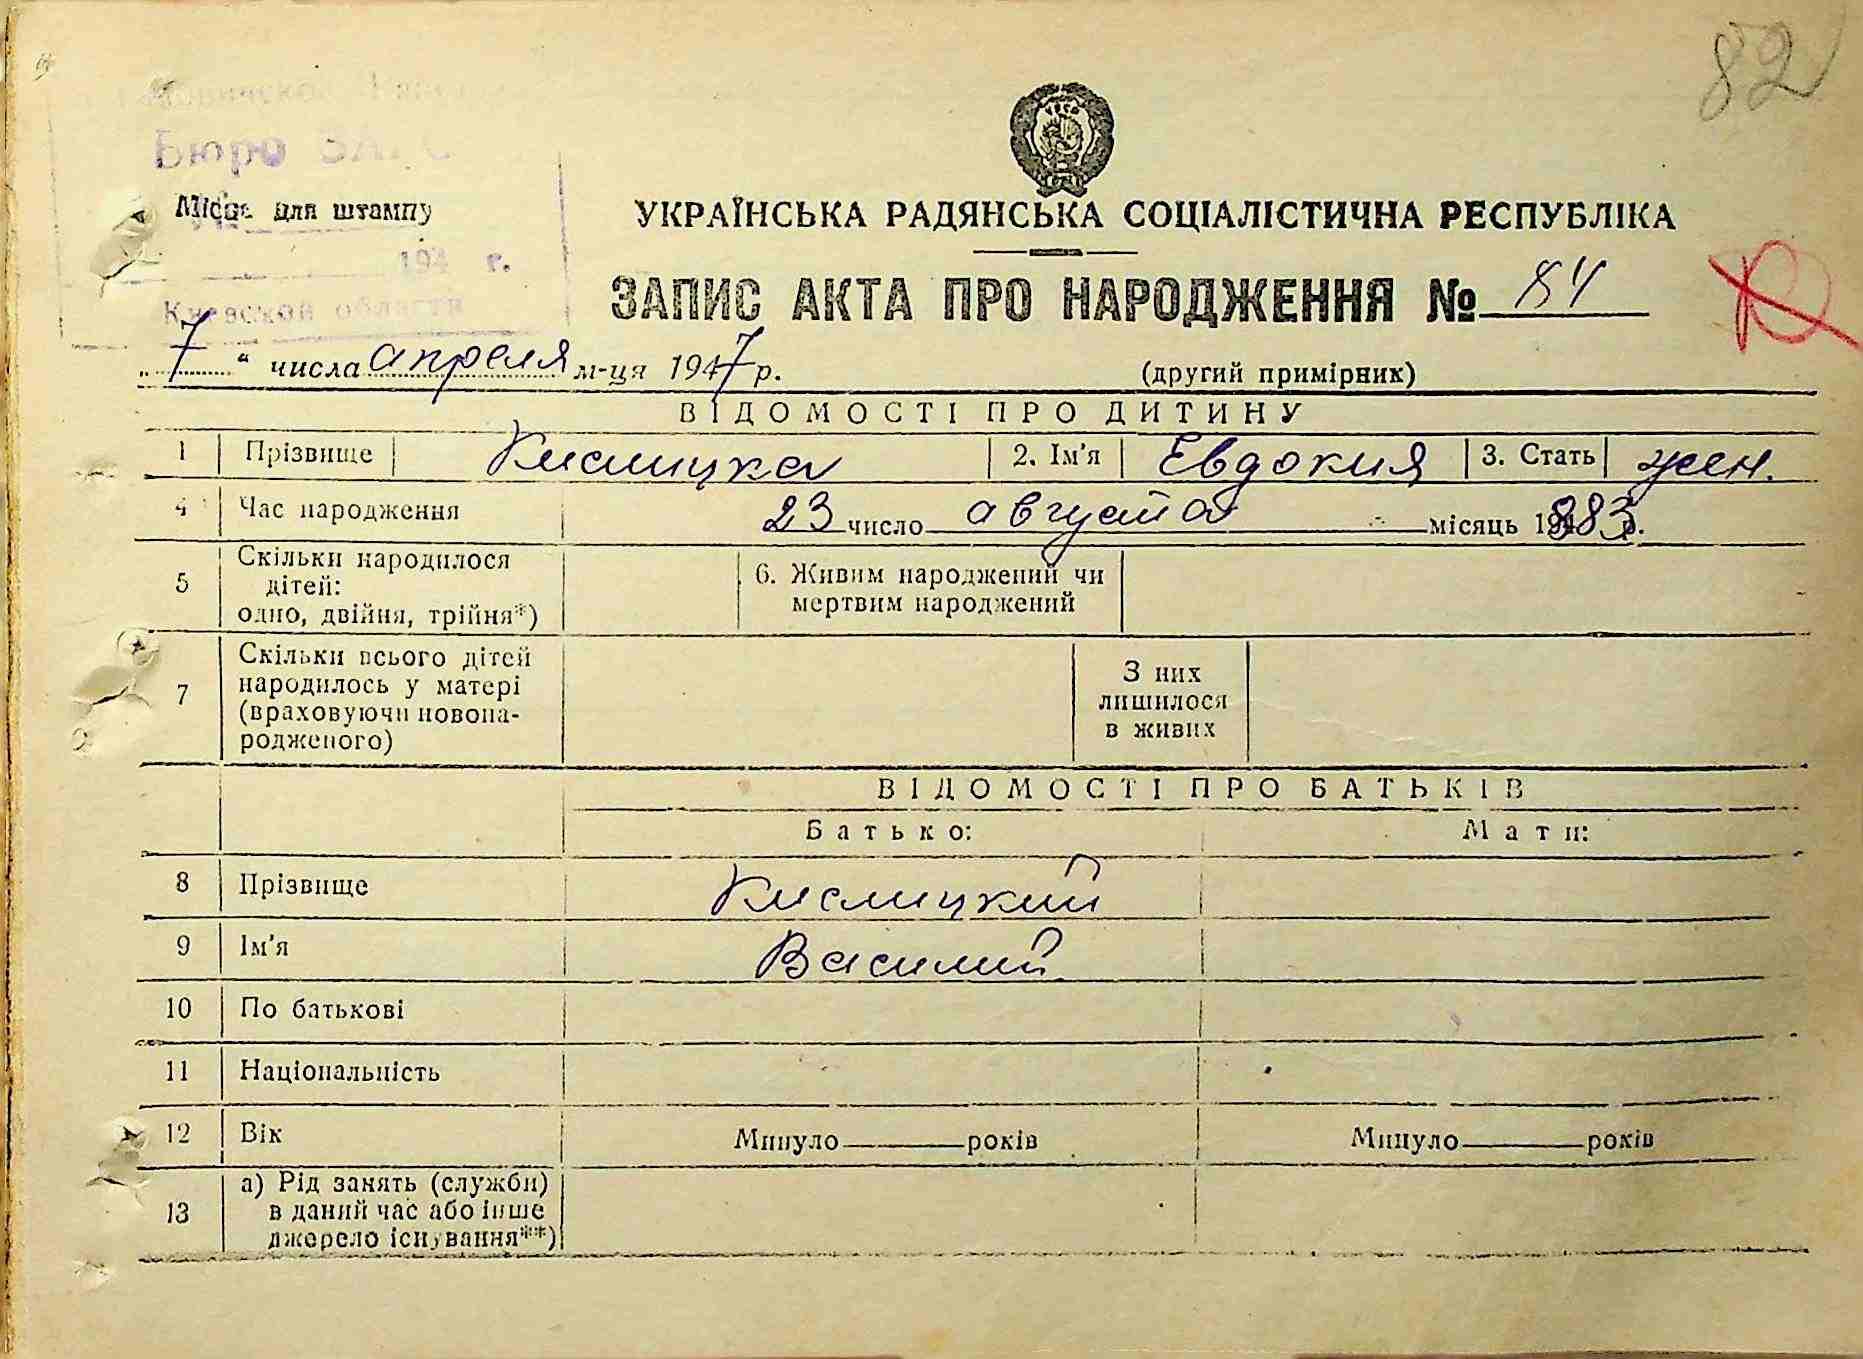 82
Бюро ЗАГС
Місце для штампу
194 г.
Киевской области
УКРАЇНСЬКА РАДЯНСЬКА СОЦІАЛІСТИЧНА РЕСПУБЛІКА
ЗАПИС АКТА ПРО НАРОДЖЕННЯ № 84
„ 7 “ числа апреля м-ця 1947 р.
(другий примірник)
ВІДОМОСТІ ПРО ДИТИНУ
1 Прізвище Кислицка 2. Ім'я Евдокия 3. Стать жен.
4 Час народження 23 число августа місяць 1883 р.
5 Скільки народилося дітей: одно, двійня, трійня*) 6. Живим народжений чи мертвим народжений
7 Скільки всього дітей народилось у матері (враховуючи новонародженого) З них лишилося в живих
ВІДОМОСТІ ПРО БАТЬКІВ
Батько: Мати:
8 Прізвище Кислицкий
9 Ім'я Василий
10 По батькові
11 Національність
12 Вік Минуло років Минуло років
13 а) Рід занять (служби) в даний час або інше джерело існування**)